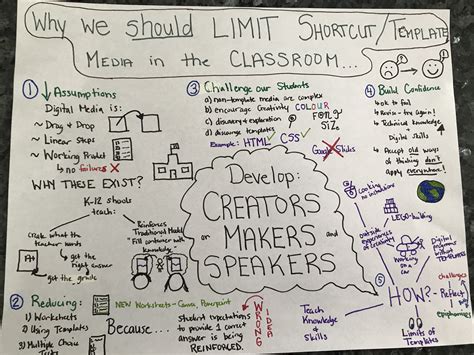 Why we should LIMIT SHORTCUT/TEMPLATE
MEDIA in the CLASSROOM...
① Assumptions
Digital Media is:
~ Drag & Drop
~ Linear Steps
~ Working Product
↳ no failures
WHY THESE EXIST?
K-12 schools
teach:
create what the
teacher wants
get the
right answer
get the grade
A+
Reinforces
Traditional Model
Fill container with
knowledge
② Reducing:
1) Worksheets
2) Using Templates
3) Multiple Choice
Tests
NEW Worksheets - Canva, Powerpoint
Because...
student expectations
to provide 1 correct
answer is being
REINFORCED.
WRONG
IDEA
③ Challenge our Students
a) non-template media are complex
b) encourage Creativity COLOUR
c) discovery & exploration
d) discourage templates
FONT
SIZE
Example: HTML CSS
Google Slides
Develop:
CREATORS
or MAKERS and
SPEAKERS
④ Build Confidence
↳ ok to fail
↳ Revise - try again!
↳ Technical Knowledge
Digital Skills
↳ Accept old ways
of thinking don't
apply everywhere!
⑤ HOW?
Cooking no
instructions
LEGO-building
outside
experiences
Working
in a
Reflect
epiphany
Digital
programs
what
TEMPLATES
Limits of
Templates
Teach
Knowledge
& Skills